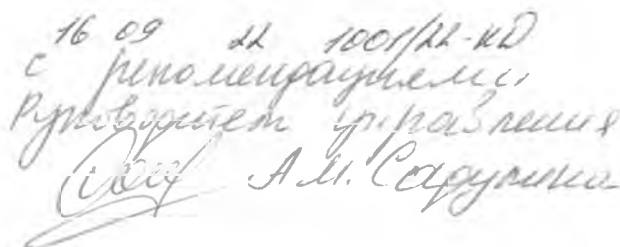 16 09 22 1001/22-КД
с рекомендациями
Руководител управления
А.М.